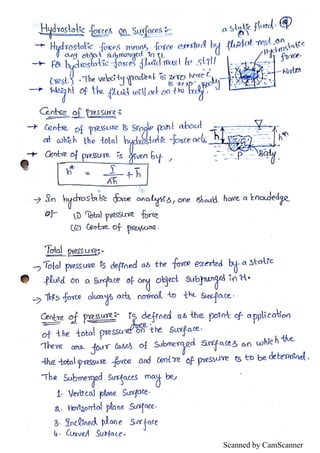 Hydrostatic forces on Surfaces:-
a static fluid.
→ Hydrostatic forces means, force exerted by fluid at rest, on
any object submerged in it.
Hydrostatic
force.
→ For hydrostatic forces fluid must be still
(rest). "The velocity gradient is zero hence
is zero"
Water
Body
→ Weight of the fluid will act on the body.
Centre of Pressure:
→ Centre of pressure is single point about
at which the total hydrostatic force acts.
→ Centre of pressure is given by,
h* = I/Ah̄ + h̄
h̄
h*
P
Body
→ In hydrostatic force analysis, one should have a knowledge
of (i) Total pressure force
(ii) Centre of pressure.
Total pressure:-
→ Total pressure is defined as the force exerted by a static
fluid on a surface of any object submerged in it.
→ This force always acts normal to the surface.
Centre of pressure:- is defined as the point of application
of the total pressure force on the surface.
There are four cases of submerged surfaces on which the
the total pressure force and centre of pressure is to be determined.
The submerged surfaces may be,
1. Vertical plane surface.
2. Horizontal plane surface.
3. Inclined plane surface
4. Curved surface.
Scanned by CamScanner